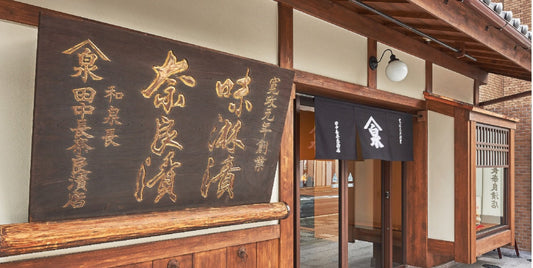 寛政元年創業
味淋漬
奈良漬
和泉長
泉 田中長奈良漬店
泉
長奈良漬店